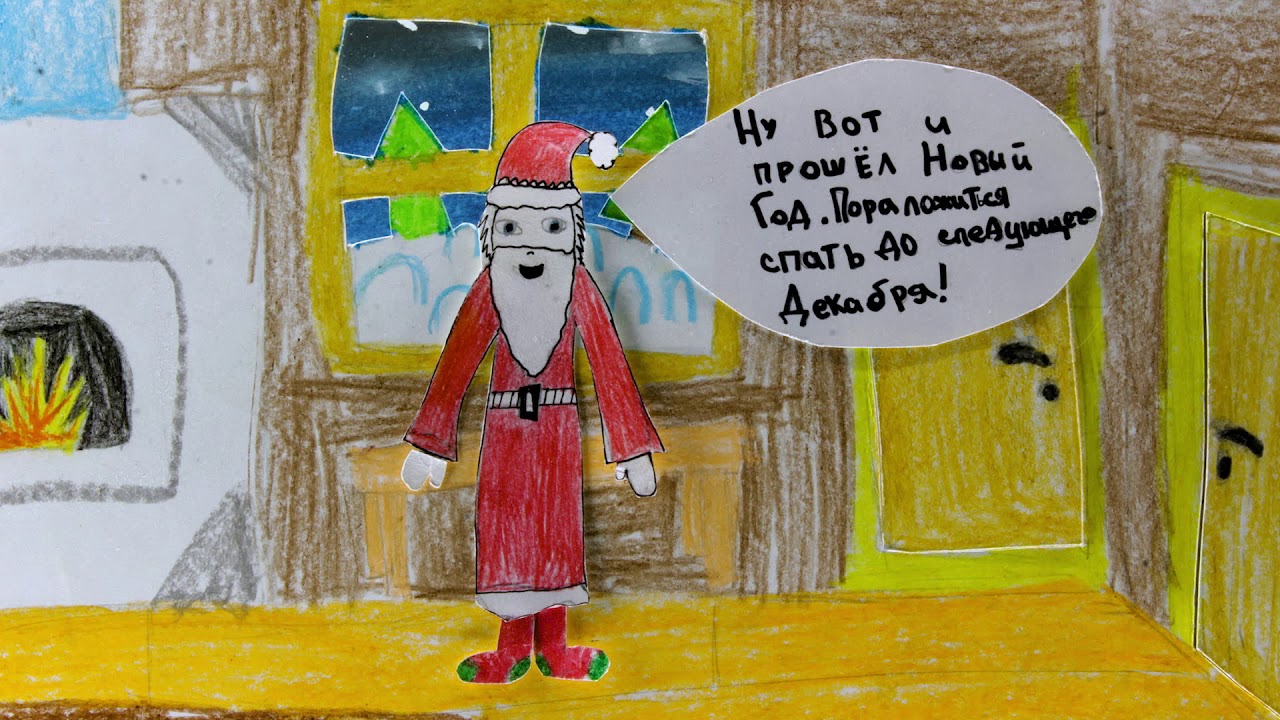 Ну вот и
прошёл Новий
Год. Пора ложиться
спать до следующего
Декабря!